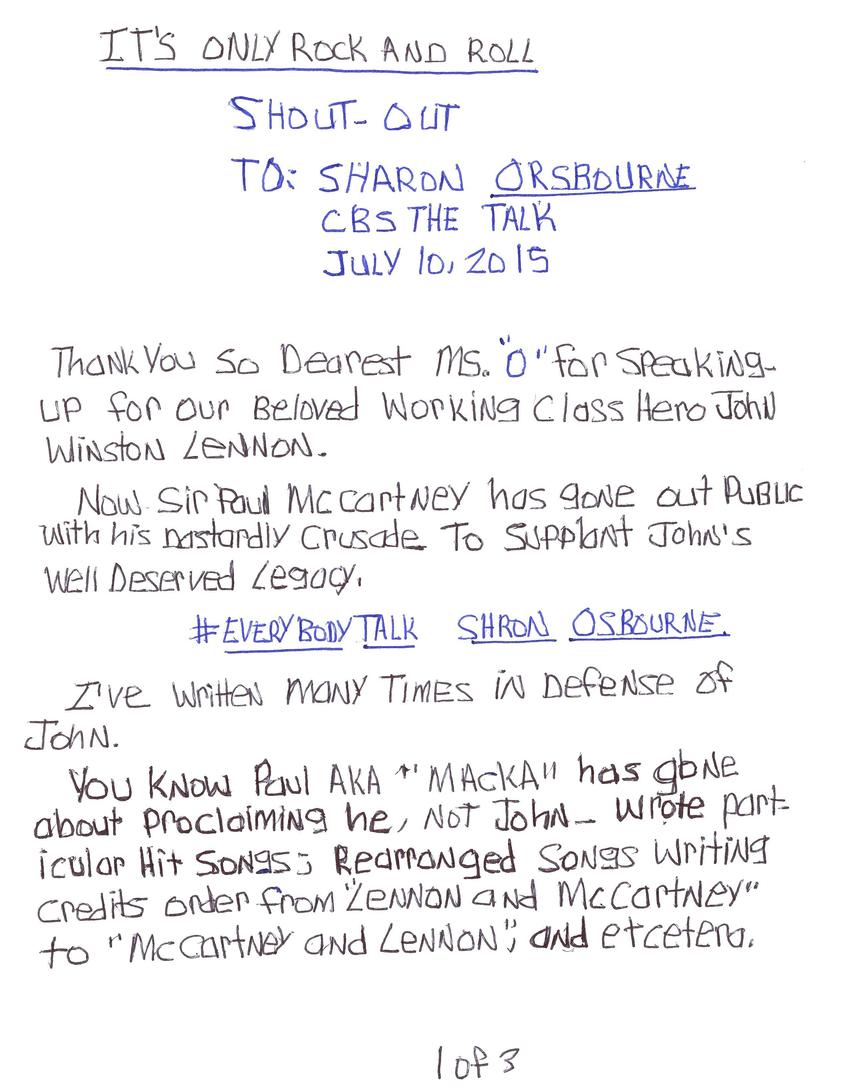 IT'S ONLY ROCK AND ROLL
SHOUT-OUT
TO: SHARON ORSBOURNE
CBS THE TALK
JULY 10, 2015
Thank You So Dearest Ms. "O" for Speaking-
UP for our Beloved Working Class Hero John
Winston LENNON.
Now Sir Paul McCartney has gone out PUBLIC
with his Dastardly Crusade To Supplant John's
Well Deserved Legacy.
#EVERYBODYTALK SHRON OSBOURNE.
I've written many Times in Defense of
John.
You Know Paul AKA "MACKA" has gone
about Proclaiming he, Not John- wrote part-
icular Hit Songs; Rearranged Songs Writing
Credits order from "LENNON and McCartney"
to "McCartney and Lennon"; and etcetera.
1 of 3